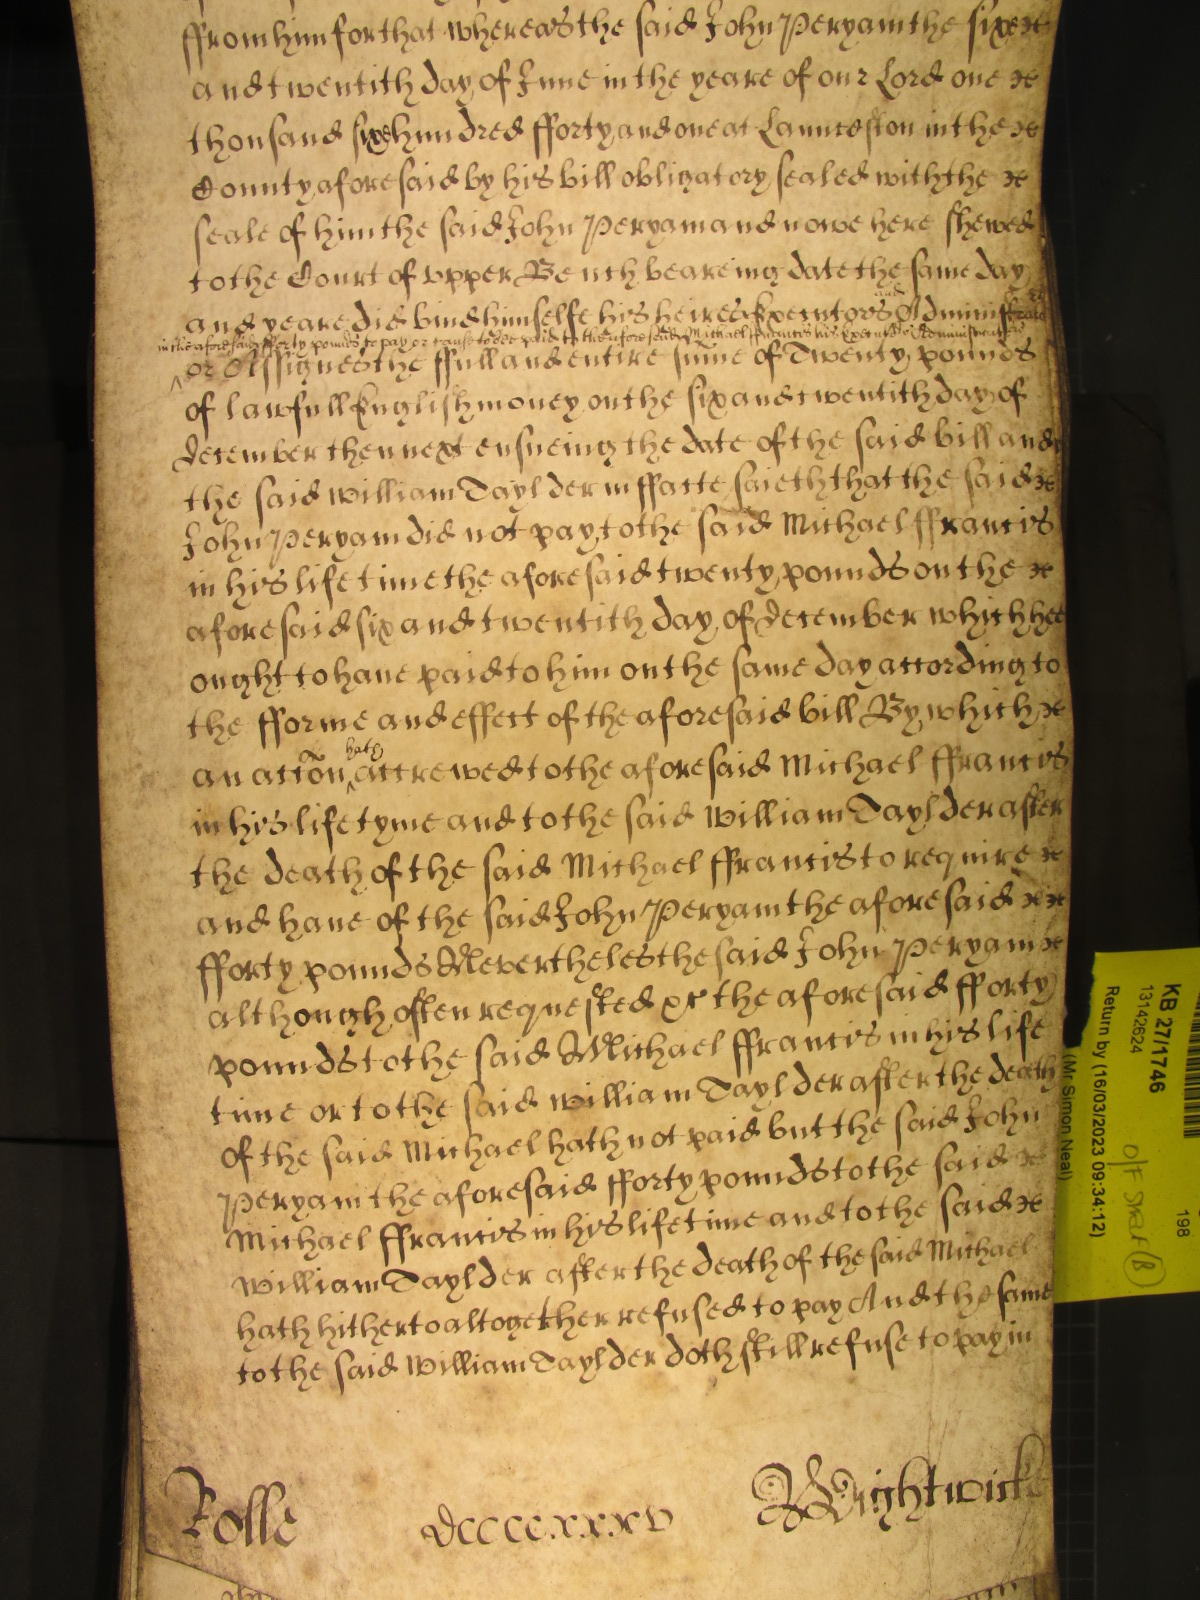 ffrom him for that whereas the said John Peryam the sixe
and twentith day of June in the yeare of our Lord one
thousand sixe hundred fforty and one at Launceston in the
County aforesaid by his bill obligatory sealed with the
seale of him the said John Peryam and nowe here shewed
to the Court of upper Bench beareing date the same day
and yeare did bind himselfe his heires Executors and Administrators
in the aforesaid fforty pounds to pay or cause to bee paid to the aforesaid Michael ffrancis his Executors Administrators
or Assignes the ffull and entire sume of Twenty pounds
of lawfull English money on the six and twentith day of
december then next ensueing the date of the said bill and
the said William Taylder in ffacte saieth that the said
John Peryam did not pay to the said Michael ffrancis
in his life time the aforesaid twenty pounds on the
aforesaid six and twentith day of december which hee
ought to have paid to him on the same day according to
the fforme and effect of the aforesaid bill By which
an accõn hath accrewed to the aforesaid Michael ffrancis
in his life tyme and to the said William Taylder after
the death of the said Michael ffrancis to require
and have of the said John Peryam the aforesaid
fforty pounds Neverthelesthe said John Peryam
although often requested &c the aforesaid fforty
pounds to the said Michael ffrancis in his life
time or to the said William Taylder after the death
of the said Michael hath not paid but the said John
Peryam the aforesaid fforty pounds to the said
Michael ffrancis in his life time and to the said
William Taylder after the death of the said Michael
hath hitherto altogether refused to pay And the same
to the said William Taylder doth still refuse to pay in
Rolle dccccxxxv Wightwick
KB 27/1746
13142624
Return by (16/03/2023 09:34:12)
(Mr Simon Neal)
198